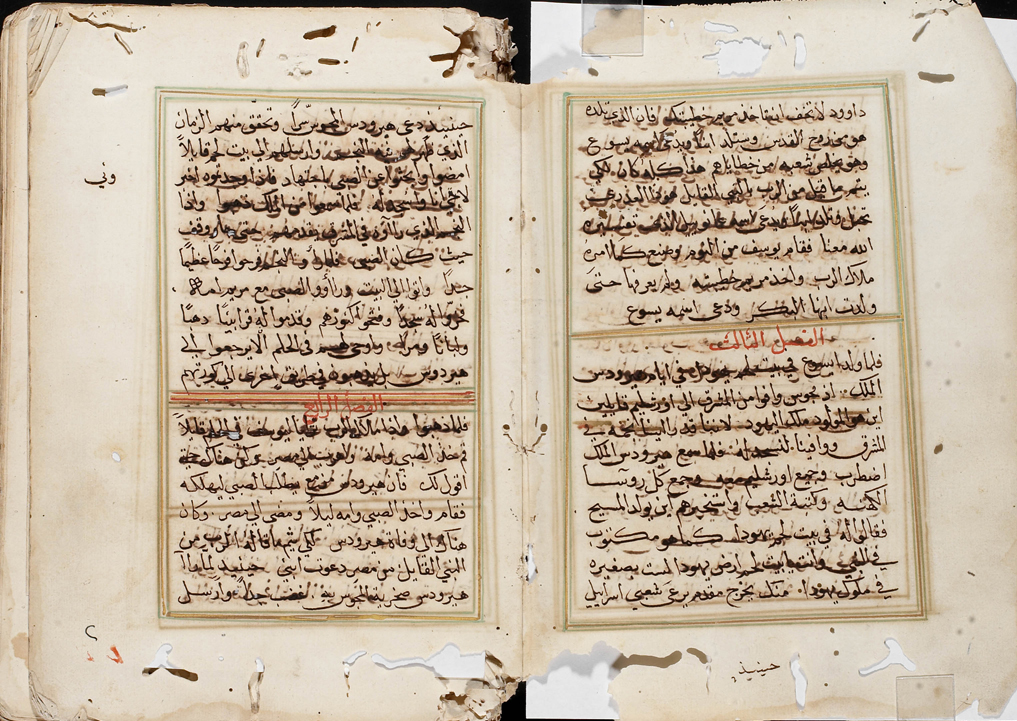 داوود لا تخف ان تاخذ مريم خطيبتك فان الذي تلده
هو من روح القدس وستلد ابنًا ويدعى اسمه يسوع
وهو يخلص شعبه من خطاياهم هذا كله كان لكي
يتم ما قيل من الرب بالنبي القايل هوذا العذرى
تحبل وتلد ابنًا ويدعى اسمه عمانوييل الذي تفسيره
الله معنا فقام يوسف من النوم وصنع كما امره
ملاك الرب واخذ مريم خطيبته ولم يعرفها حتى
ولدت ابنها البكر ودعى اسمه يسوع
الفصل الثالث
فلما ولد يسوع في بيت لحم يهودا في ايام هيرودس
الملك اذ مجوس وافوا من المشرق الى اورشليم قايلين
اين هو المولود ملك اليهود لاننا قد راينا نجمه في
المشرق ووافينا لنسجد له فلما سمع هيرودس الملك
اضطرب وجميع اورشليم معه وجمع كل روسا
الكهنه وكتبة الشعب واستخبرهم اين يولد المسيح
فقالوا له في بيت لحم يهودا كما هو مكتوب
في النبي وانت يا بيت لحم ارض يهودا لست بصغيره
في ملوك يهودا منك يخرج مقدم يرعى شعبي اسراييل
حينيذ
حينيذ دعى هيرودس المجوس سرًا وتحقق منهم الزمان
الذي ظهر لهم فيه النجم وارسلهم الى بيت لحم قايلاً
امضوا وابحثوا عن الصبي باجتهاد فاذا وجدتموه اخبروني
لاجي انا واسجد له فلما سمعوا من الملك ذهبوا واذا
النجم الذي راوه في المشرق يقدمهم حتى جا ووقف
حيث كان الصبي فلما راوا النجم فرحوا فرحًا عظيمًا
جدًا واتوا الى البيت وراوا الصبي مع مريم امه
فخروا له سجدًا وفتحوا كنوزهم وقدموا له قرابينًا ذهبًا
ولبانًا ومرًا واوحي لهم في الحلم الا يرجعوا الى
هيرودس بل يذهبون في طريق اخرى الى كورتهم
الفصل الرابع
فلما ذهبوا واذا ملاك الرب ليوسف في الحلم قايلاً
قم خذ الصبي وامه واهرب الى مصر وكن هناك حتى
اقول لك فان هيرودس مزمع يطلب الصبي ليهلكه
فقام واخذ الصبي وامه ليلاً ومضى الى مصر وكان
هناك الى وفاة هيرودس لكي يتم ما قاله الرب من
النبي القايل من مصر دعوت ابني حينيذ لما راا
هيرودس سخرية المجوس به غضب جدًا وارسل